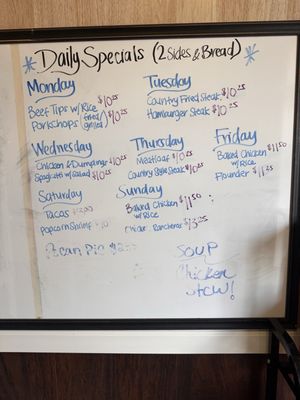 Daily Specials (2 Sides & Bread)
Monday
Beef Tips w/ Rice $10.25
Porkchops (fried/grilled) $10.25
Tuesday
Country Fried Steak $10.25
Hamburger Steak $10.25
Wednesday
Chicken & Dumplings $10.25
Spaghetti w/ Salad $10.25
Thursday
Meatloaf $10.25
Country Style Steak $10.25
Friday
Baked Chicken $11.50
w/ Rice
Flounder
Saturday
Tacos
Popcorn Shrimp
Sunday
Baked Chicken $11.50
w/ Rice
Pecan Pie
SOUP
Chicken
Stew!